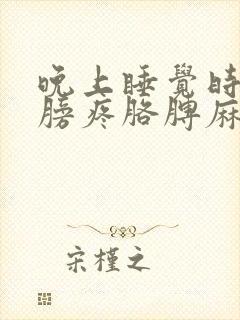 晚上睡覺時
膀疼胳脾麻
宋槿之